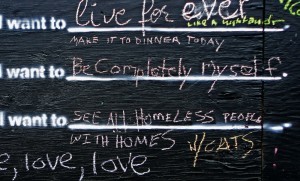 I want to live for ever
Like a light
MAKE IT TO DINNER TODAY
I want to Be Completely myself.
I want to SEE All HOMELESS PEOPLE
WITH HOMES W/CATS
e, love, love